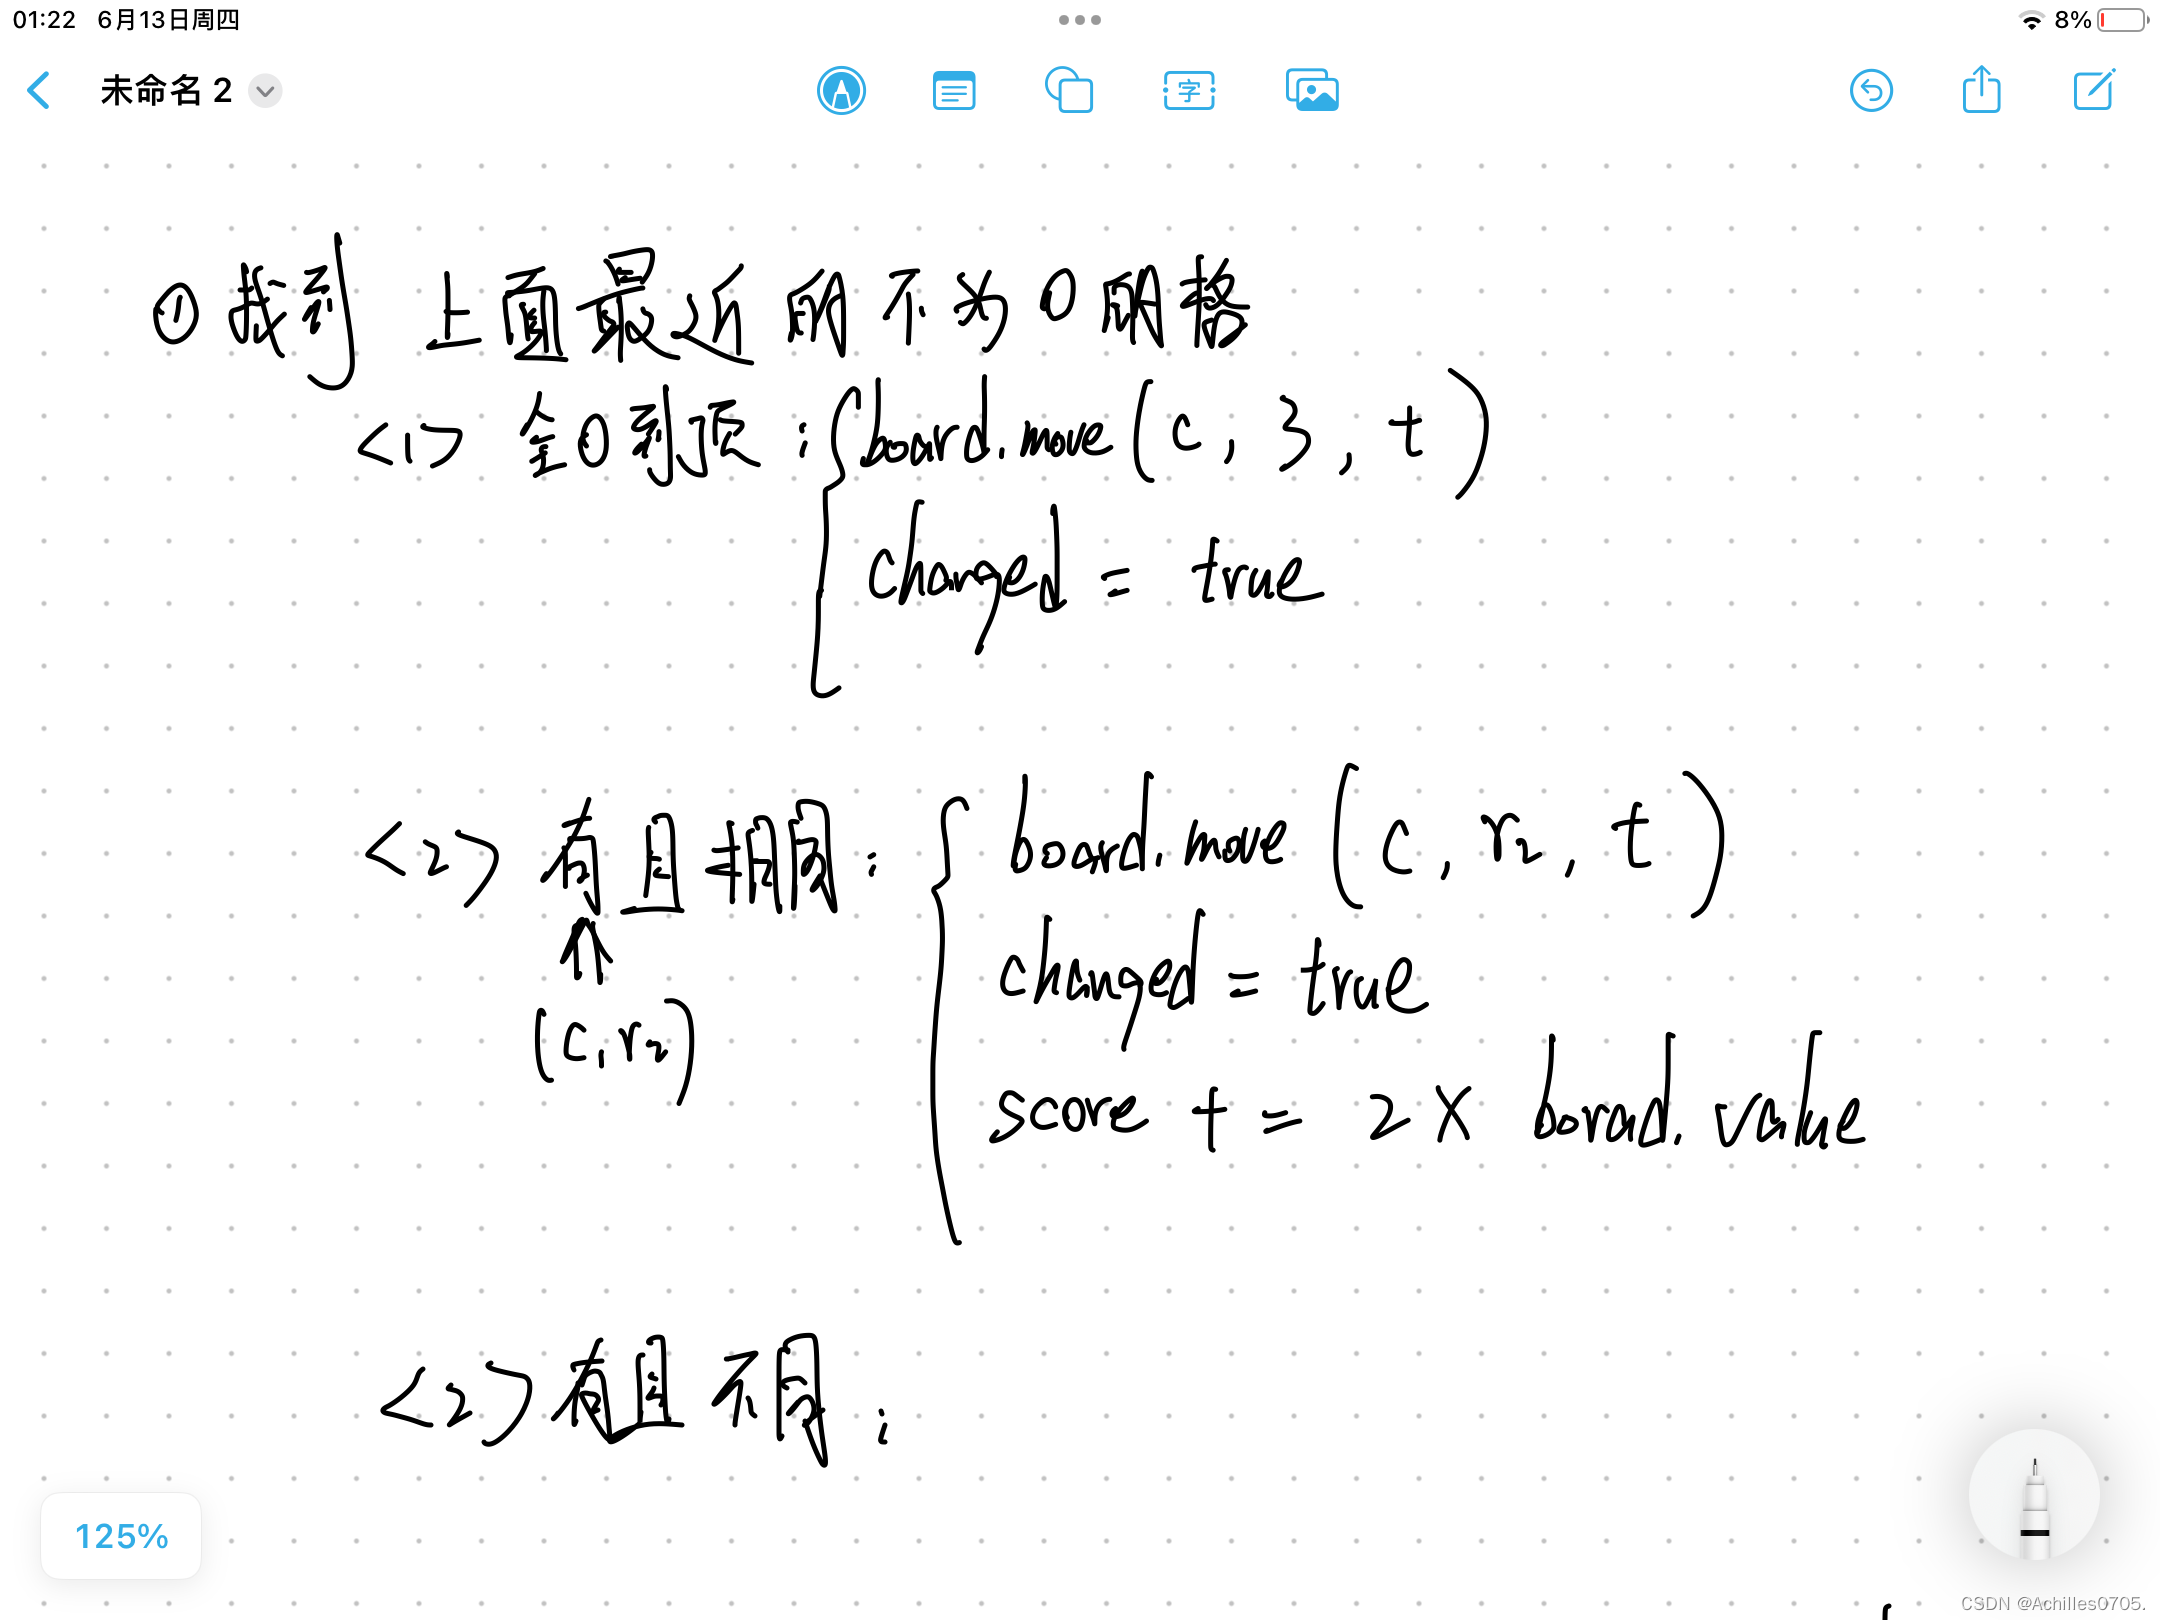 01:22 6月13日周四
8%
未命名 2
字
① 找到 上面最近的不为0的格
<1> 全0到顶: board.move(c, 3, t)
changed = true
<2> 有且相同: board.move(c, r2, t)
changed = true
(c, r2)
score += 2 X borad.value
<2> 有且不同:
125%
CSDN @Achilles0705.